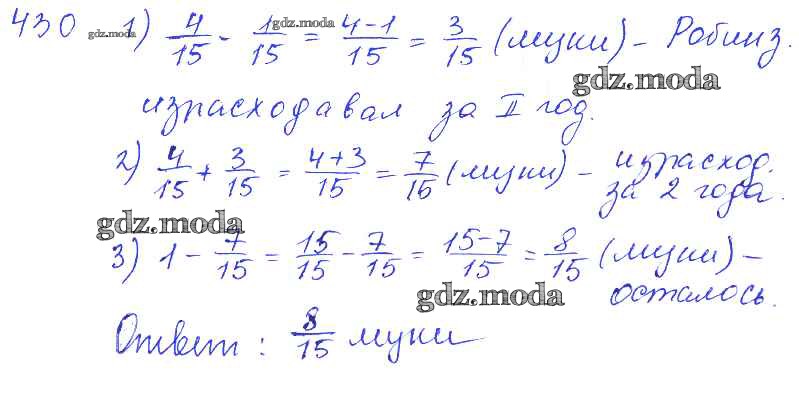 430 gdz.moda 1) 4/15 - 1/15 = (4-1)/15 = 3/15 (муки) - Робинз.
gdz.moda
gdz.moda
израсходавал за II год.
2) 4/15 + 3/15 = (4+3)/15 = 7/15 (муки) - израсход.
за 2 года.
gdz.moda
3) 1 - 7/15 = 15/15 - 7/15 = (15-7)/15 = 8/15 (муки) -
gdz.moda осталось.
Ответ: 8/15 муки